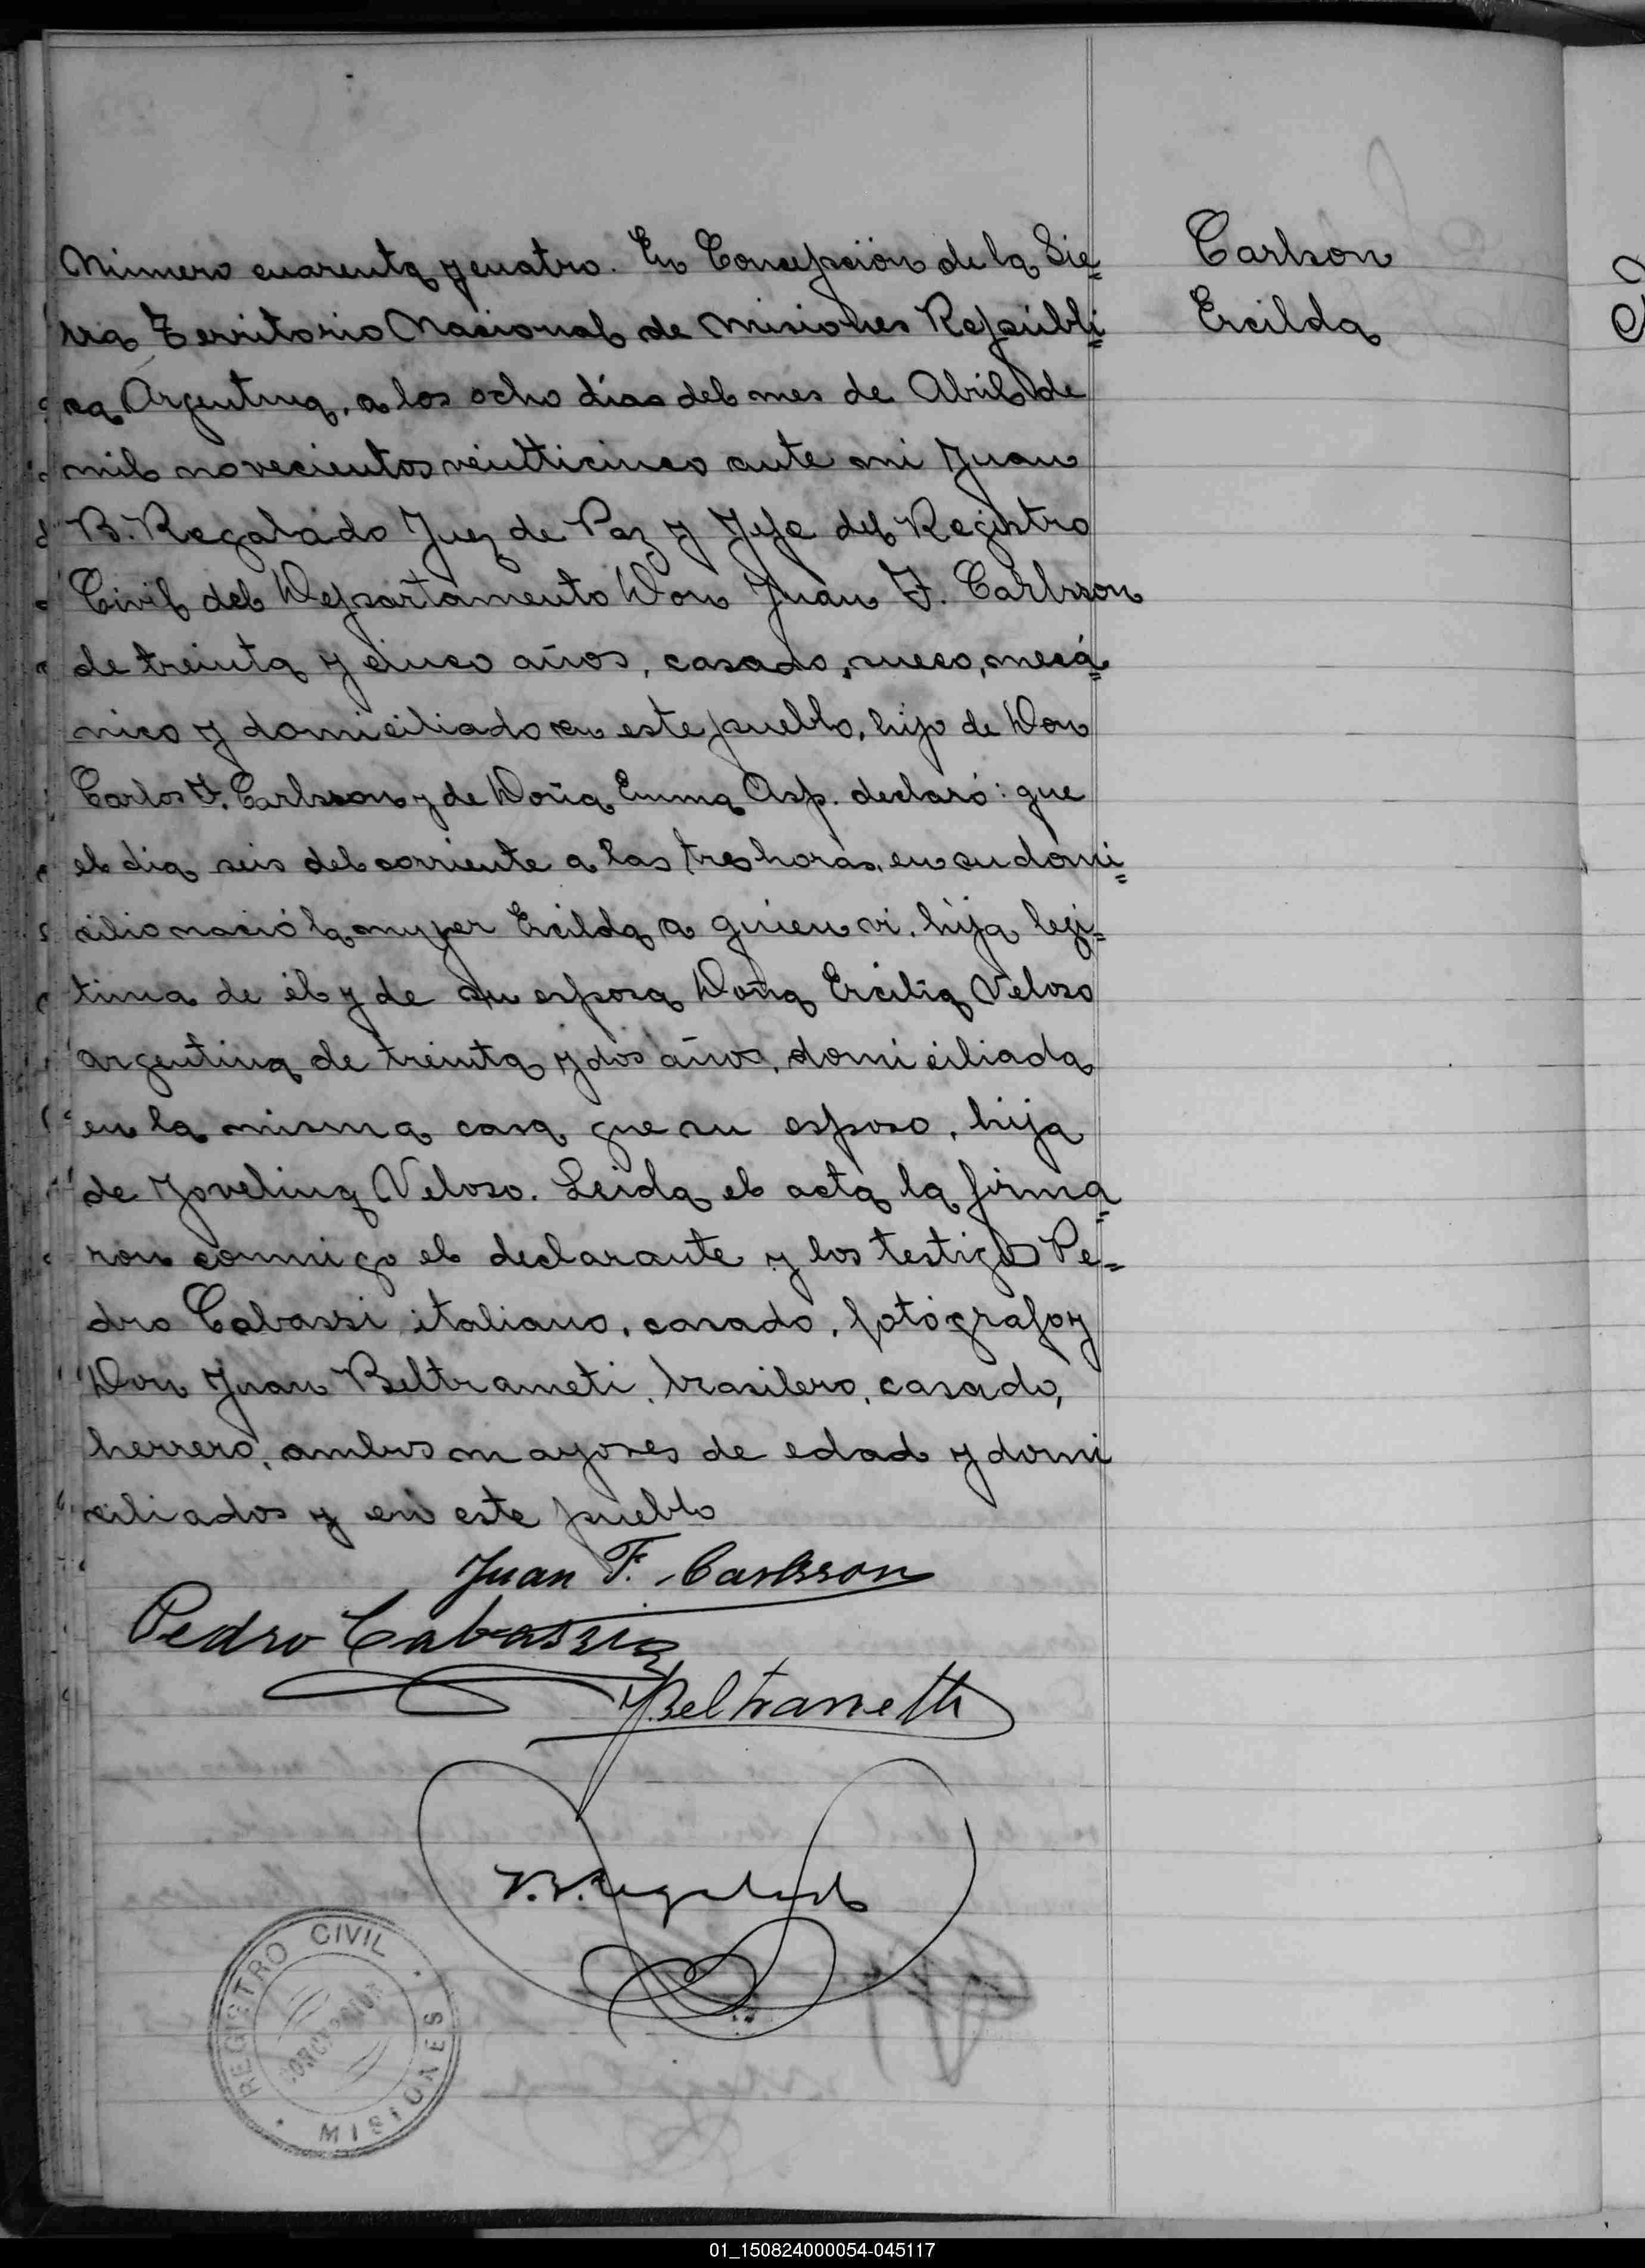 Carlson
Ercilda
Número cuarenta y cuatro. En Concepción de la Sie=
rra Territorio Nacional de Misiones Repúbli=
ca Argentina, a los ocho días del mes de Abril de
mil novecientos veinticinco ante mi Juan
B. Regalado Juez de Paz y Jefe del Registro
Civil del Departamento Don Juan F. Carlsson
de treinta y cinco años, casado, sueco, mecá=
nico y domiciliado en este pueblo, hijo de Don
Carlos F. Carlsson y de Doña Emma Asp. declaró: que
el dia seis del corriente a las tres horas, en su domi=
cilio nació la mujer Ercilda a quien vi, hija legi=
tima de él y de su esposa Doña Ercilia Veloso
argentina de treinta y dos años, domiciliada
en la misma casa que su esposo, hija
de Jovelina Veloso. Leida el acta la firma=
ron conmigo el declarante y los testigos Pe=
dro Cabassi italiano, casado, fotógrafo y
Don Juan Beltrameti, brasilero, casado,
herrero, ambos mayores de edad y domi
ciliados y en este pueblo
Juan F. Carlsson
Pedro Cabassi
J Beltrametti
J. B. Regalado
REGISTRO CIVIL
CONCEPCION
MISIONES
01_150824000054-045117